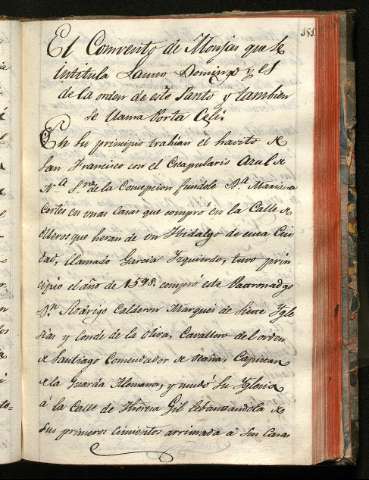 385.
El Convento de Monjas que se
intitula Santo Domingo y es
de la orden de este Santo y tambien
se llama Porta Celi.
En su principio trahian el havito de
San Francisco con el Escapulario Azul de
N.ª S.ra de la Concepcion fundole D.ª Mariana
Cortes en unas casas que compro en la Calle de
que heran de un Hidalgo de esta Ciu
dad, llamado Garcia Izquierdo, tuvo prin
cipio el año de 1598. compró este Patronadgo
D.n Rodrigo Calderon Marques de Siete Ygle
sias y Conde de la Oliva, Cavallero del orden
de Santiago Comendador de Ocaña, Capitan
de la Guarda Alemana, y mudó su Yglesia
á la Calle de Theresa Gil lebantandola de
sus primeros cimientos arrimada á sus Casas